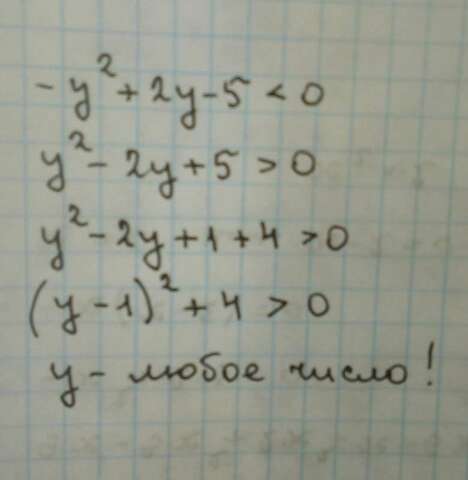 -y² + 2y - 5 < 0
y² - 2y + 5 > 0
y² - 2y + 1 + 4 > 0
(y - 1)² + 4 > 0
y - любое число!